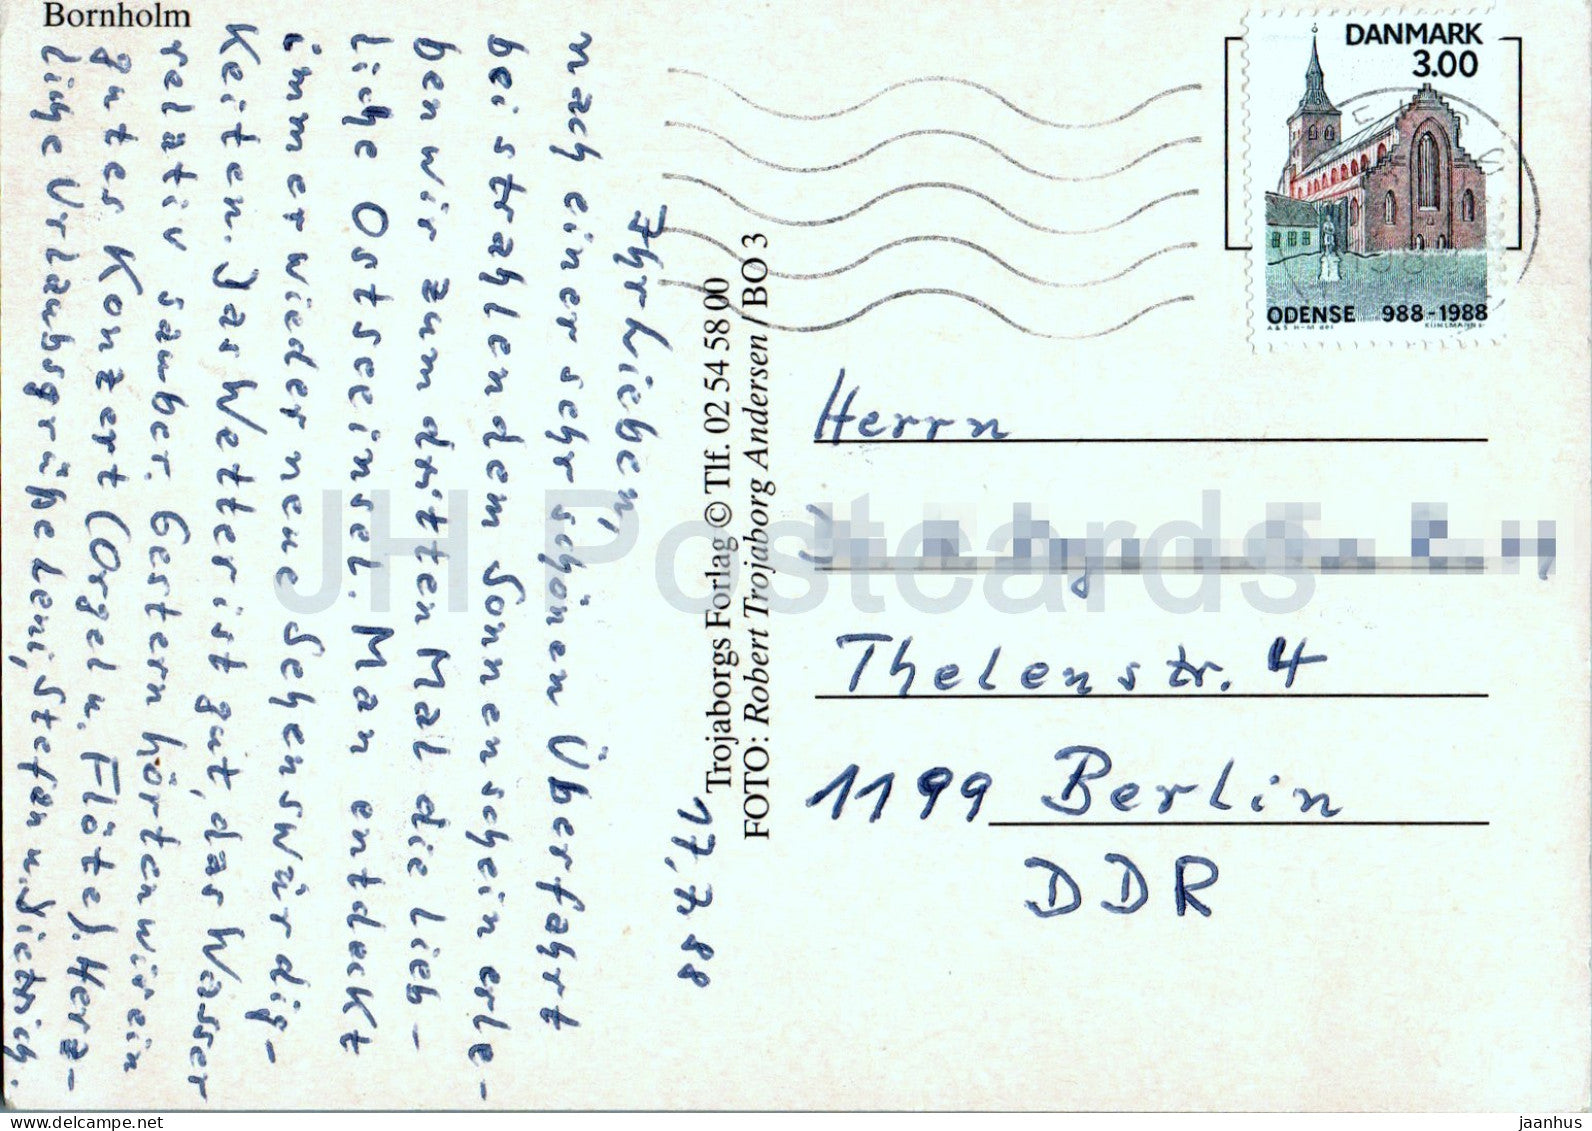 Bornholm
17.7.88
Ihr Lieben,
nach einer sehr schönen Überfahrt
bei strahlendem Sonnenschein erle-
ben wir zum dritten Mal die lieb-
liche Ostseeinsel. Man entdeckt
immer wieder neue Sehenswürdig-
keiten. Das Wetter ist gut, das Wasser
relativ sauber. Gestern hörten wir ein
gutes Konzert (Orgel u. Flöte). Herz-
liche Urlaubsgrüße Leni, Stefan u. Dietrich.
Trojaborgs Forlag © Tlf. 02 54 58 00
FOTO: Robert Trojaborg Andersen / BO 3
DANMARK
3.00
ODENSE 988-1988
Herrn
Thelenstr. 4
1199 Berlin
DDR
JH Postcards
www.delcampe.net
jaanhus